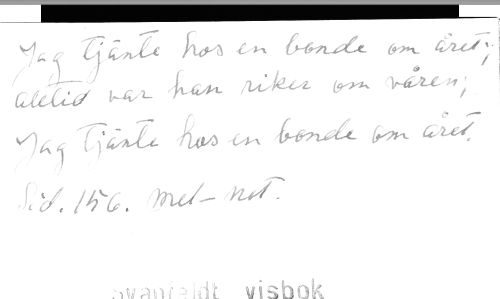 Jag tjänte hos en bonde om året;
alltid var han riker om våren;
Jag tjänte hos en bonde om året.
Sid. 156. mel-not.
visbok